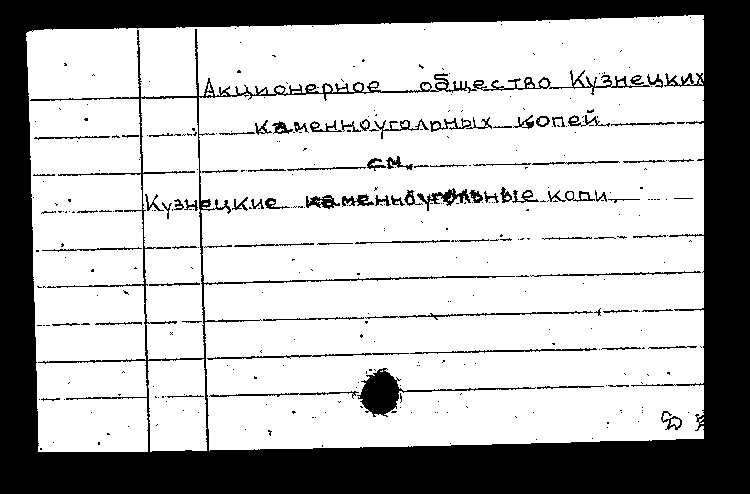 Акционерное общество Кузнецких
каменноугольных копей
см.
Кузнецкие каменноугольные копи.